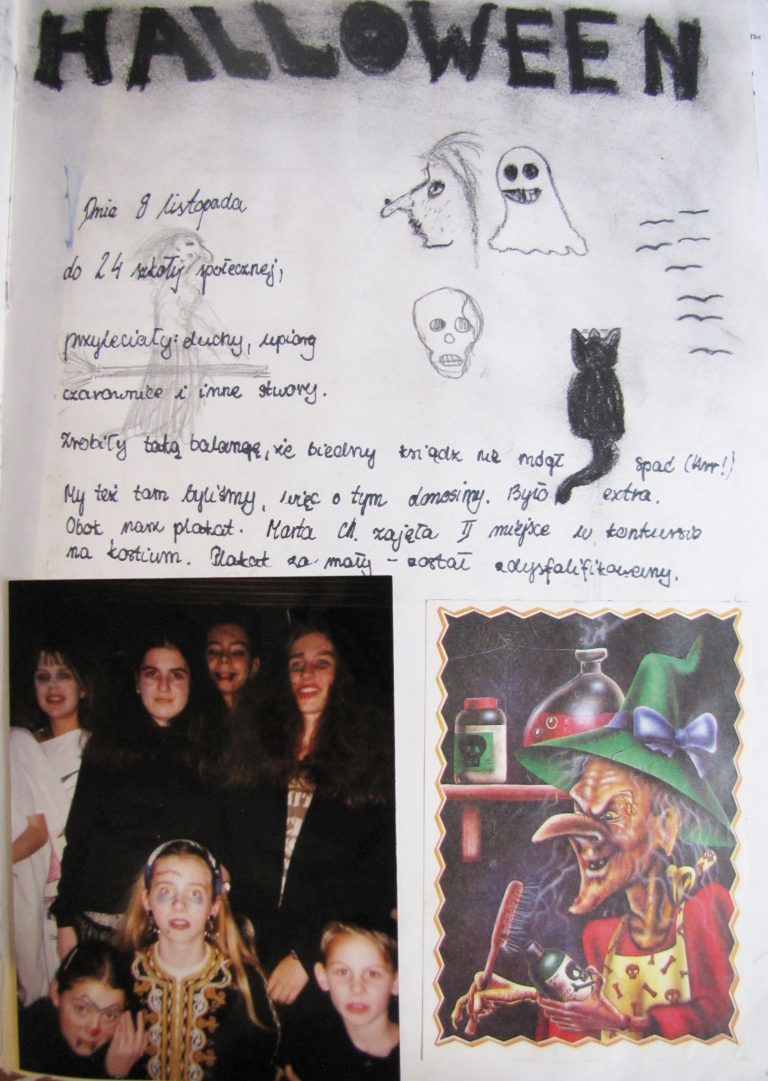 HALLOWEEN
Dnia 8 listopada
do 24 szkoły społecznej,
przyleciały: duchy, upiory
czarownice i inne stwory.
Zrobiły taką balangę, że biedny ksiądz nie mógł spać (Urr!)
My też tam byliśmy, więc o tym donosimy. Było extra.
Obok nasz plakat. Marta Ch. zajęła II miejsce w konkursie
na kostium. Plakat za mały - został zdysfalifikowany.
TM